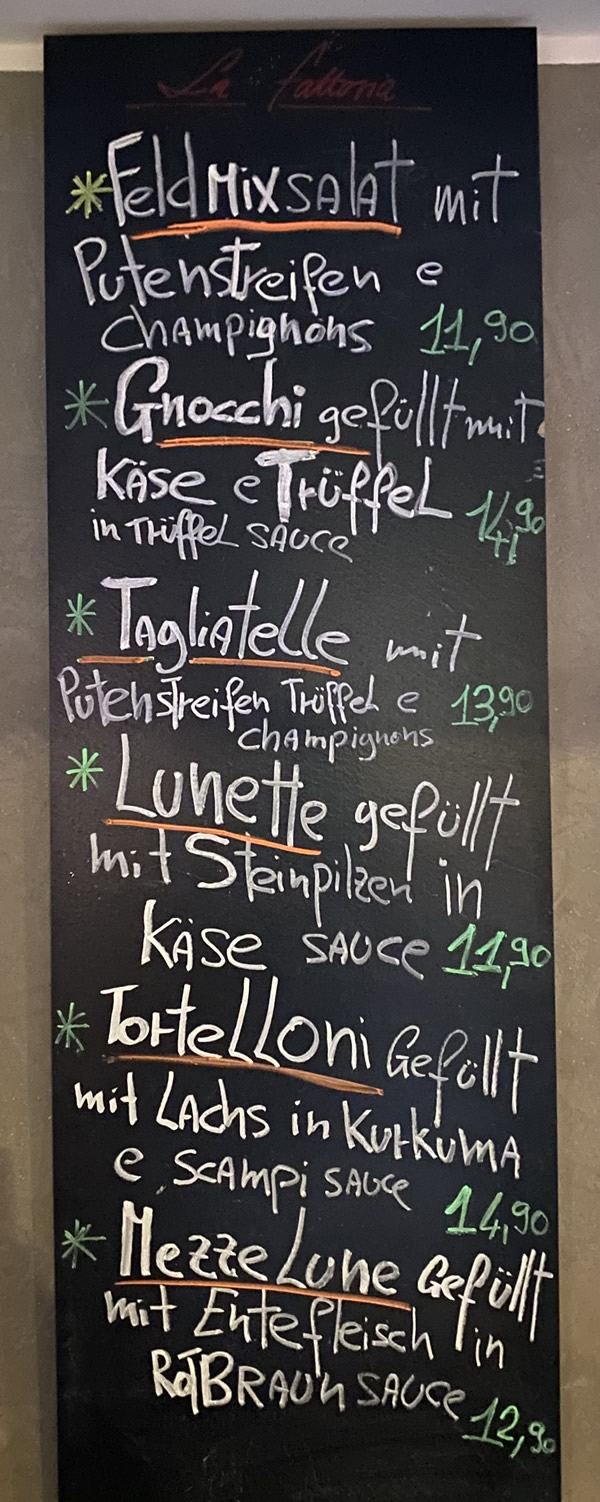 La fattoria
*FeldMixSALAT mit
Putenstreifen e
CHAMpignons 11,90
*Gnocchi gefüllt mit
KÄSE e Trüffel 14,90
in Trüffel SAUCE
*TAgliATelle mit
Putenstreifen Trüffel e 13,90
CHAMpignons
*Lunette gefüllt
mit Steinpilzen in
KÄSE SAUCE 11,90
*Tortelloni Gefüllt
mit LAcHs in KurkuMA
e SCAMpi SAUCE 14,90
*Mezze Lune Gefüllt
mit Entefleisch in
RotBRAUN SAUCE 12,90